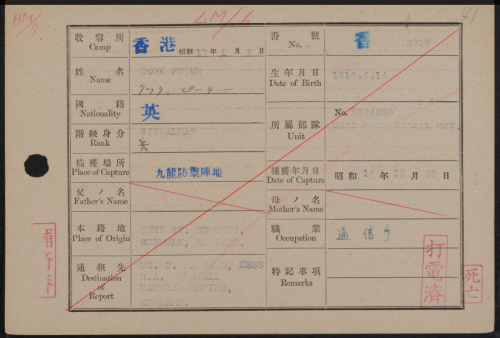 HM/7
4M/6
41
收容所
Camp
香港
昭和 17年 1月 7日
番號
No.
香
姓名
Name
クック、ピーター
生年月日
Date of Birth
1918.6.14
國籍
Nationality
英
所屬部隊
Unit
No.
階級身分
Rank
SIGNALMAN
英
捕獲場所
Place of Capture
九龍防禦陣地
捕獲年月日
Date of Capture
昭和 16年 12月 25日
父ノ名
Father's Name
母ノ名
Mother's Name
本籍地
Place of Origin
BURY ST. EDMUNDS,
SUFFOLK,
職業
Occupation
通信手
通報先
Destination of Report
R.A.
CAMBRIDGESHIRE,
ENGLAND.
特記事項
Remarks
打電濟
死亡